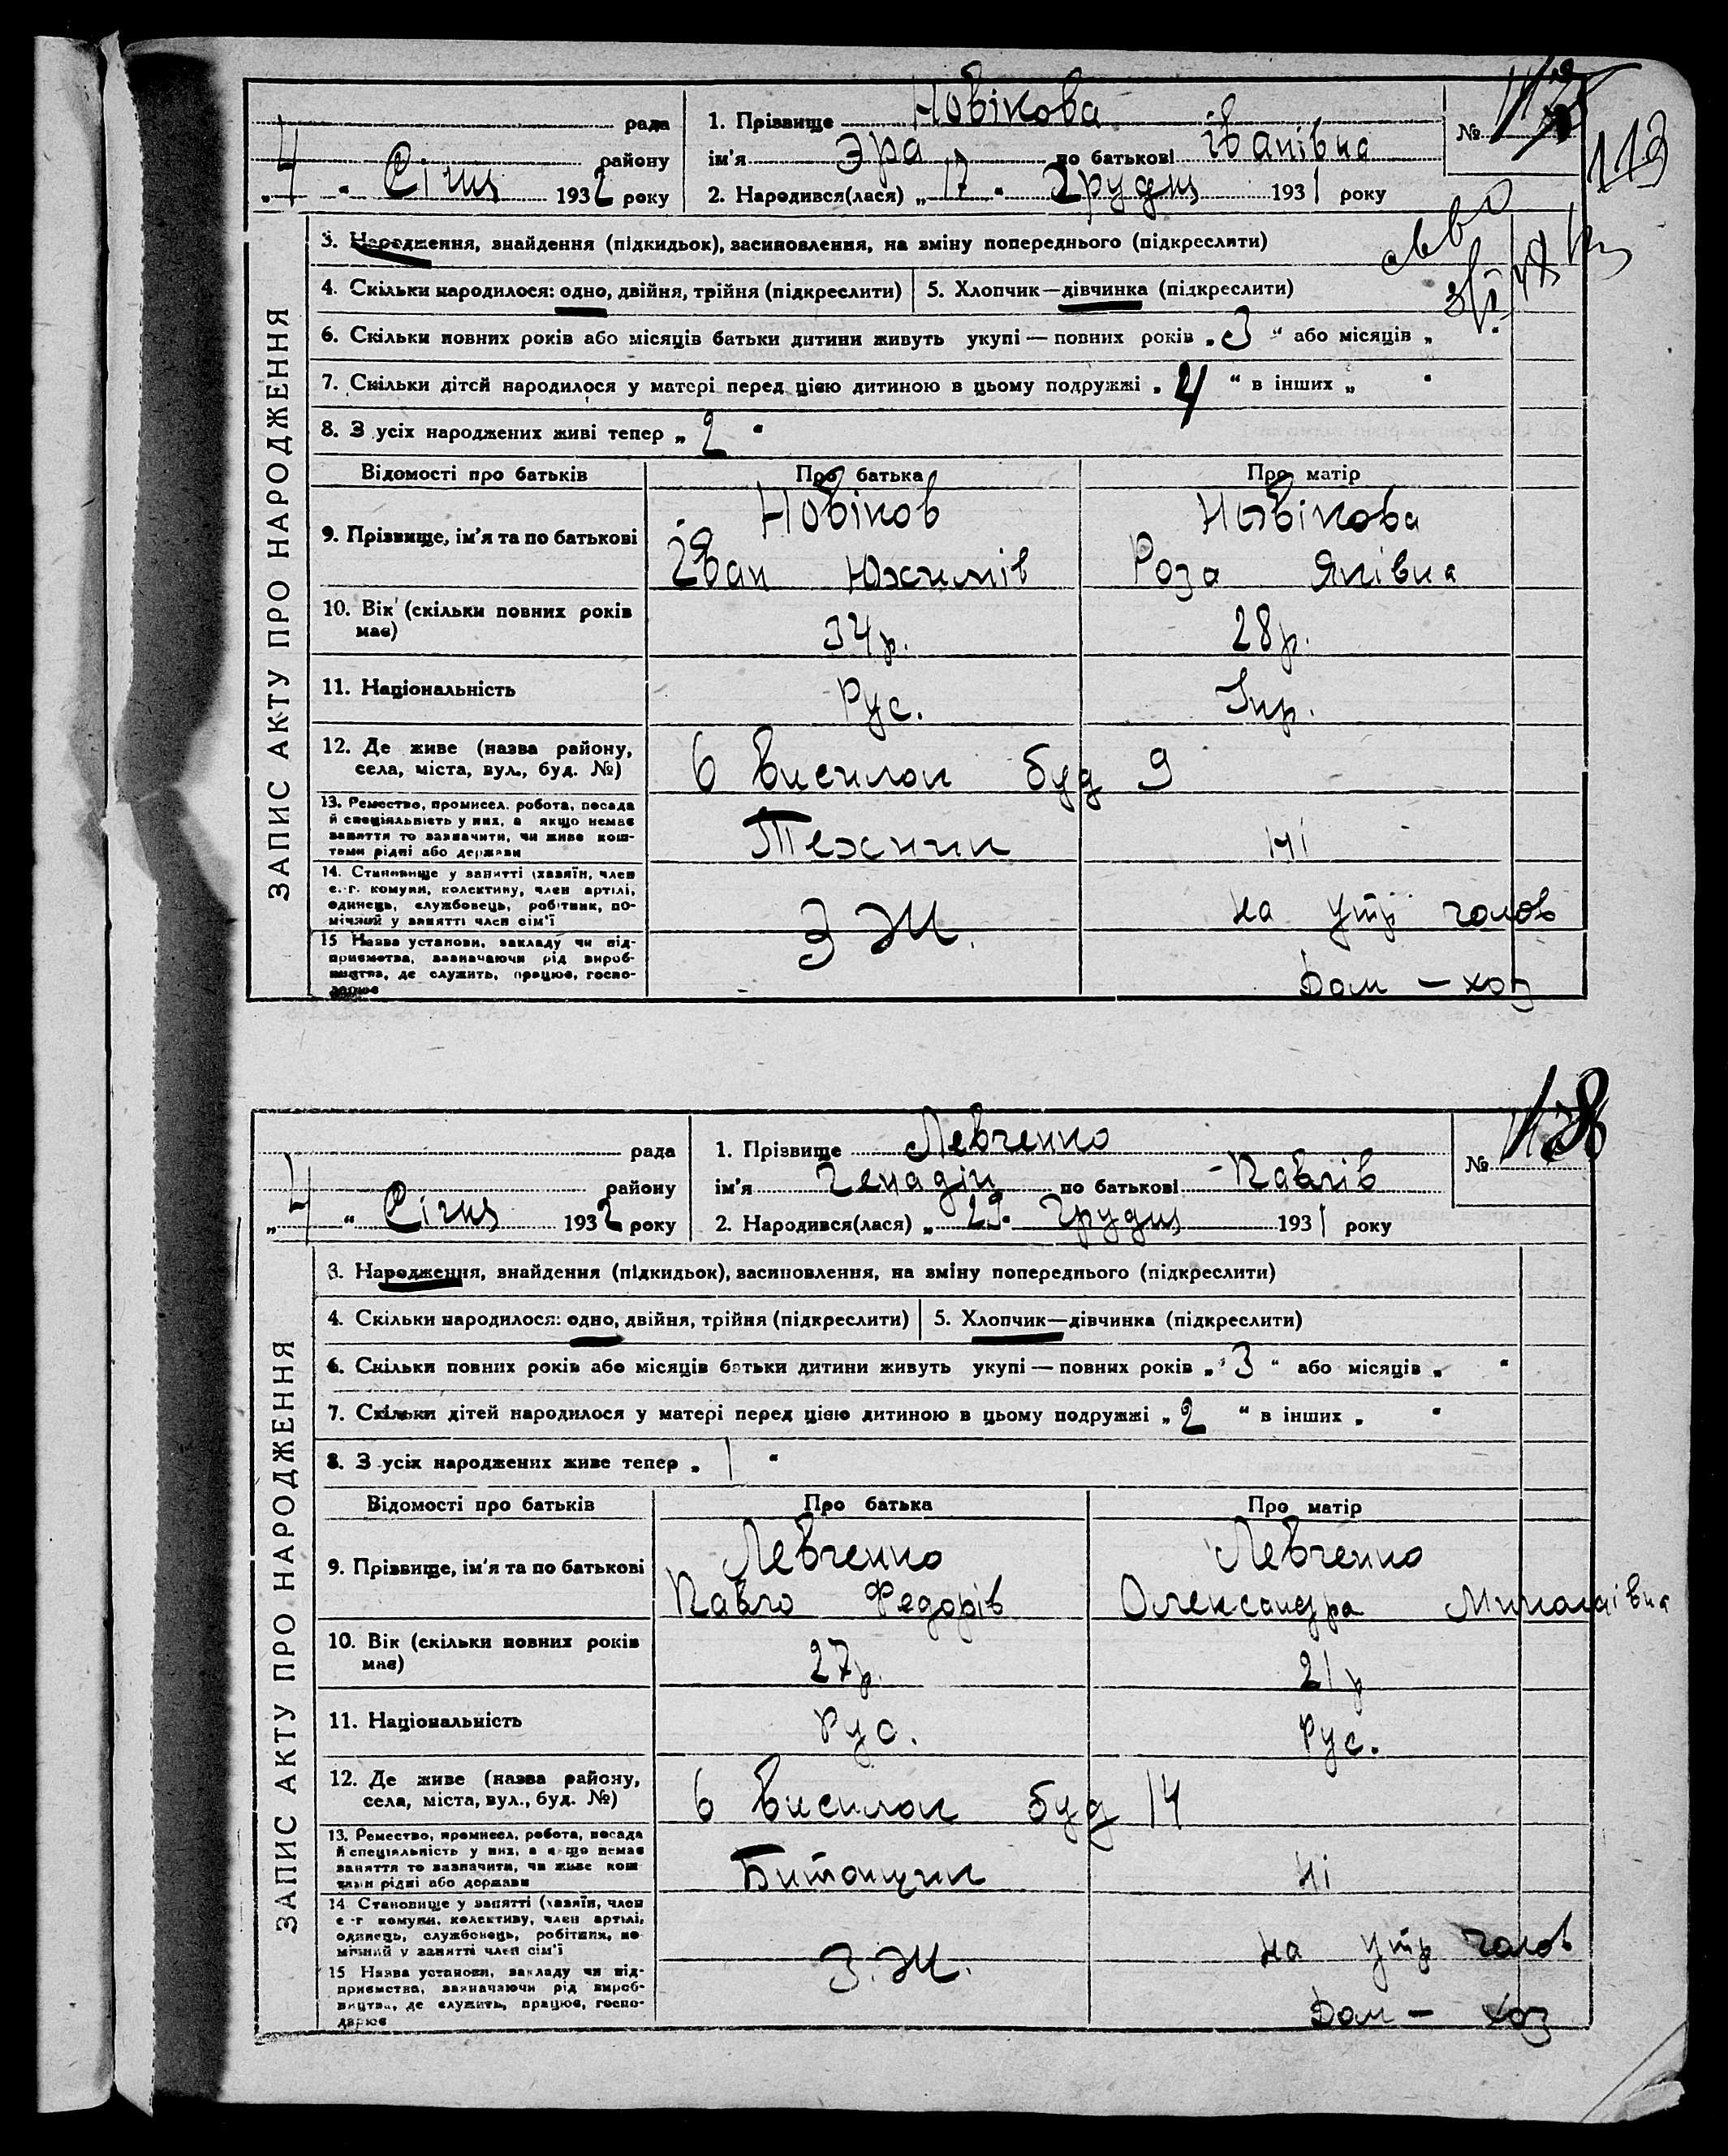 рада
1. Прізвище Новікова
№
119
району
ім'я Эра по батькові Іванівна
„4“ Січня 1932 року
2. Народився(лася) „17“ Грудня 1931 року
ЗАПИС АКТУ ПРО НАРОДЖЕННЯ
3. Народження, знайдення (підкидьок), засиновлення, на зміну попереднього (підкреслити)
4. Скільки народилося: одно, двійня, трійня (підкреслити)
5. Хлопчик—дівчинка (підкреслити)
6. Скільки повних років або місяців батьки дитини живуть укупі — повних років „3“ або місяців „
7. Скільки дітей народилося у матері перед цією дитиною в цьому подружжі „4“ в інших „ “
8. З усіх народжених живі тепер „2“
Відомості про батьків
Про батька
Про матір
9. Прізвище, ім'я та по батькові
Новіков
Іван Юхимів
Новікова
Роза Яківна
10. Вік (скільки повних років
має)
34р.
28р.
11. Національність
Рус.
12. Де живе (назва району,
села, міста, вул., буд. №)
6 висилок буд 9
13. Ремество, промисел, робота, посада
й спеціяльність у них, а якщо немає
заняття то зазначити, чи живе кош-
тами рідні або держави
Техник
Ні
14. Становище у занятті (хазяїн, член
с.-г. комуни, колективу, член артілі,
одинець, службовець, робітник, по-
мічний у занятті член сім'ї
З Ж.
на утр голов
15 Назва установи, закладу чи під-
приємства, зазначаючи рід вироб-
ництва, де служить, працює, госпо-
дарює
Дом — хоз
рада
1. Прізвище Левченко
№
району
ім'я Генадій по батькові Павлів
„4“ Січня 1932 року
2. Народився(лася) „29. Грудня 1931 року
ЗАПИС АКТУ ПРО НАРОДЖЕННЯ
3. Народження, знайдення (підкидьок), засиновлення, на зміну попереднього (підкреслити)
4. Скільки народилося: одно, двійня, трійня (підкреслити)
5. Хлопчик—дівчинка (підкреслити)
6. Скільки повних років або місяців батьки дитини живуть укупі — повних років „3“ або місяців „ “
7. Скільки дітей народилося у матері перед цією дитиною в цьому подружжі „2“ в інших „ “
8. З усіх народжених живе тепер „1“
Відомості про батьків
Про батька
Про матір
9. Прізвище, ім'я та по батькові
Левченко
Павло Федорів
Левченко
Олександра Миколаївна
10. Вік (скільки повних років
має)
27р.
21р
11. Національність
Рус.
Рус.
12. Де живе (назва району,
села, міста, вул., буд. №)
6 висилок буд 14
13. Ремество, промисел, робота, посада
й спеціяльність у них, а якщо немає
заняття то зазначити, чи живе кош
тами рідні або держави
Ні
14 Становище у занятті (хазяїн, член
с-г комуни, колективу, член артілі,
одинець, службовець, робітник, по-
мічний у занятті член сім'ї
З.Ж.
на утр голов
15 Назва установи, закладу чи під-
приємства, зазначаючи рід вироб-
ництва, де служить, працює, госпо-
дарює
Дом — хоз